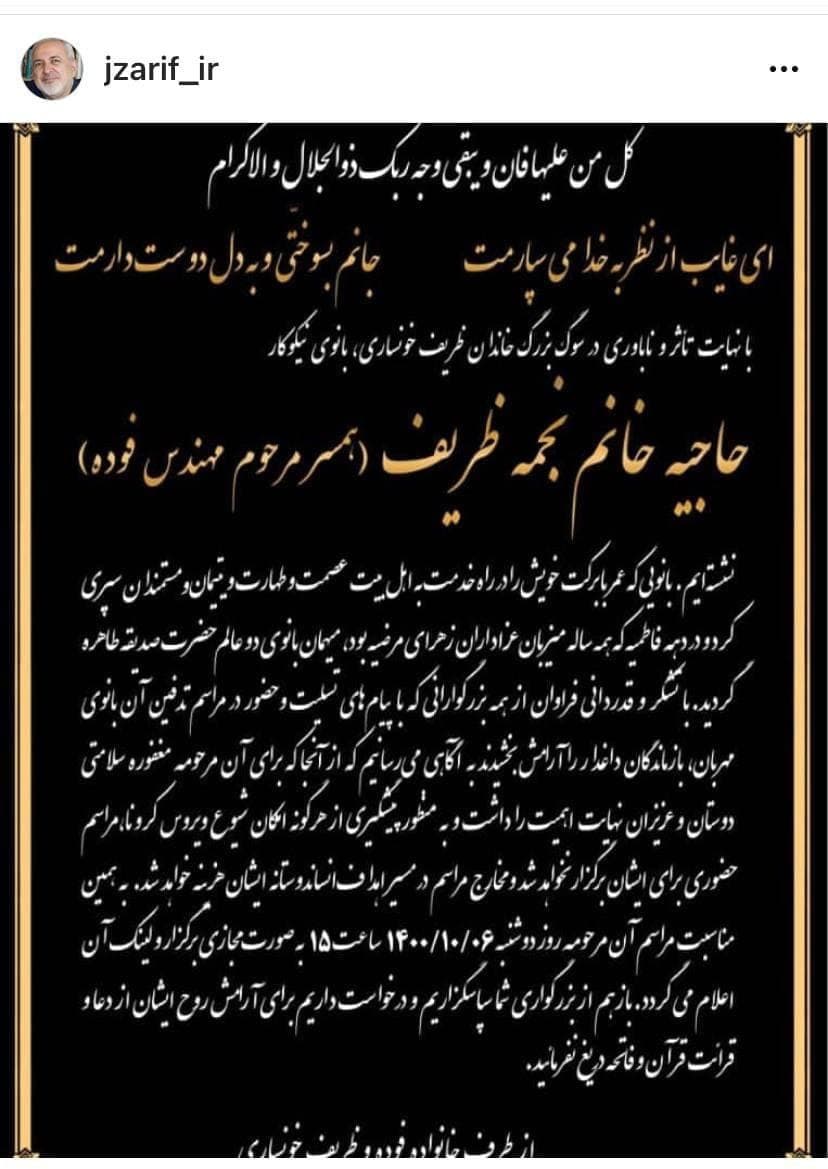 jzarif_ir
کل من علیها فان و یبقی وجه ربک ذوالجلال و الاکرام
ای غایب از نظر به خدا می سپارمت جانم بسوختی و به دل دوست دارمت
با نهایت تاثر و ناباوری در سوگ بزرگ خاندان ظریف خونساری، بانوی نیکوکار
حاجیه خانم نجمه ظریف (همسر مرحوم مهندس فوده)
نشسته‌ایم. بانویی که عمر بابرکت خویش را در راه خدمت به اهل بیت عصمت و طهارت و یتیمان و مستمندان سپری
کرد و در دهه فاطمیه که همه ساله میزبان عزاداران زهرای مرضیه بود، میهمان بانوی دو عالم حضرت صدیقه طاهره
گردید. با تشکر و قدردانی فراوان از همه بزرگوارانی که با پیام های تسلیت و حضور در مراسم تدفین آن بانوی
مهربان، بازماندگان داغدار را آرامش بخشیدند به آگاهی می رسانیم که از آنجا که برای آن مرحومه مغفوره سلامتی
دوستان و عزیزان نهایت اهمیت را داشت و به منظور پیشگیری از هرگونه امکان شیوع ویروس کرونا، مراسم
حضوری برای ایشان برگزار نخواهد شد و مخارج مراسم در مسیر اهداف انساندوستانه ایشان هزینه خواهد شد. به همین
مناسبت مراسم آن مرحومه روز دوشنبه ۱۴۰۰/۱۰/۰۶ ساعت ۱۵ به صورت مجازی برگزار و لینک آن
اعلام می گردد. باز هم از بزرگواری شما سپاسگزاریم و درخواست داریم برای آرامش روح ایشان از دعا و
قرائت قرآن و فاتحه دریغ نفرمائید.
از طرف خانواده فوده و ظریف خونساری